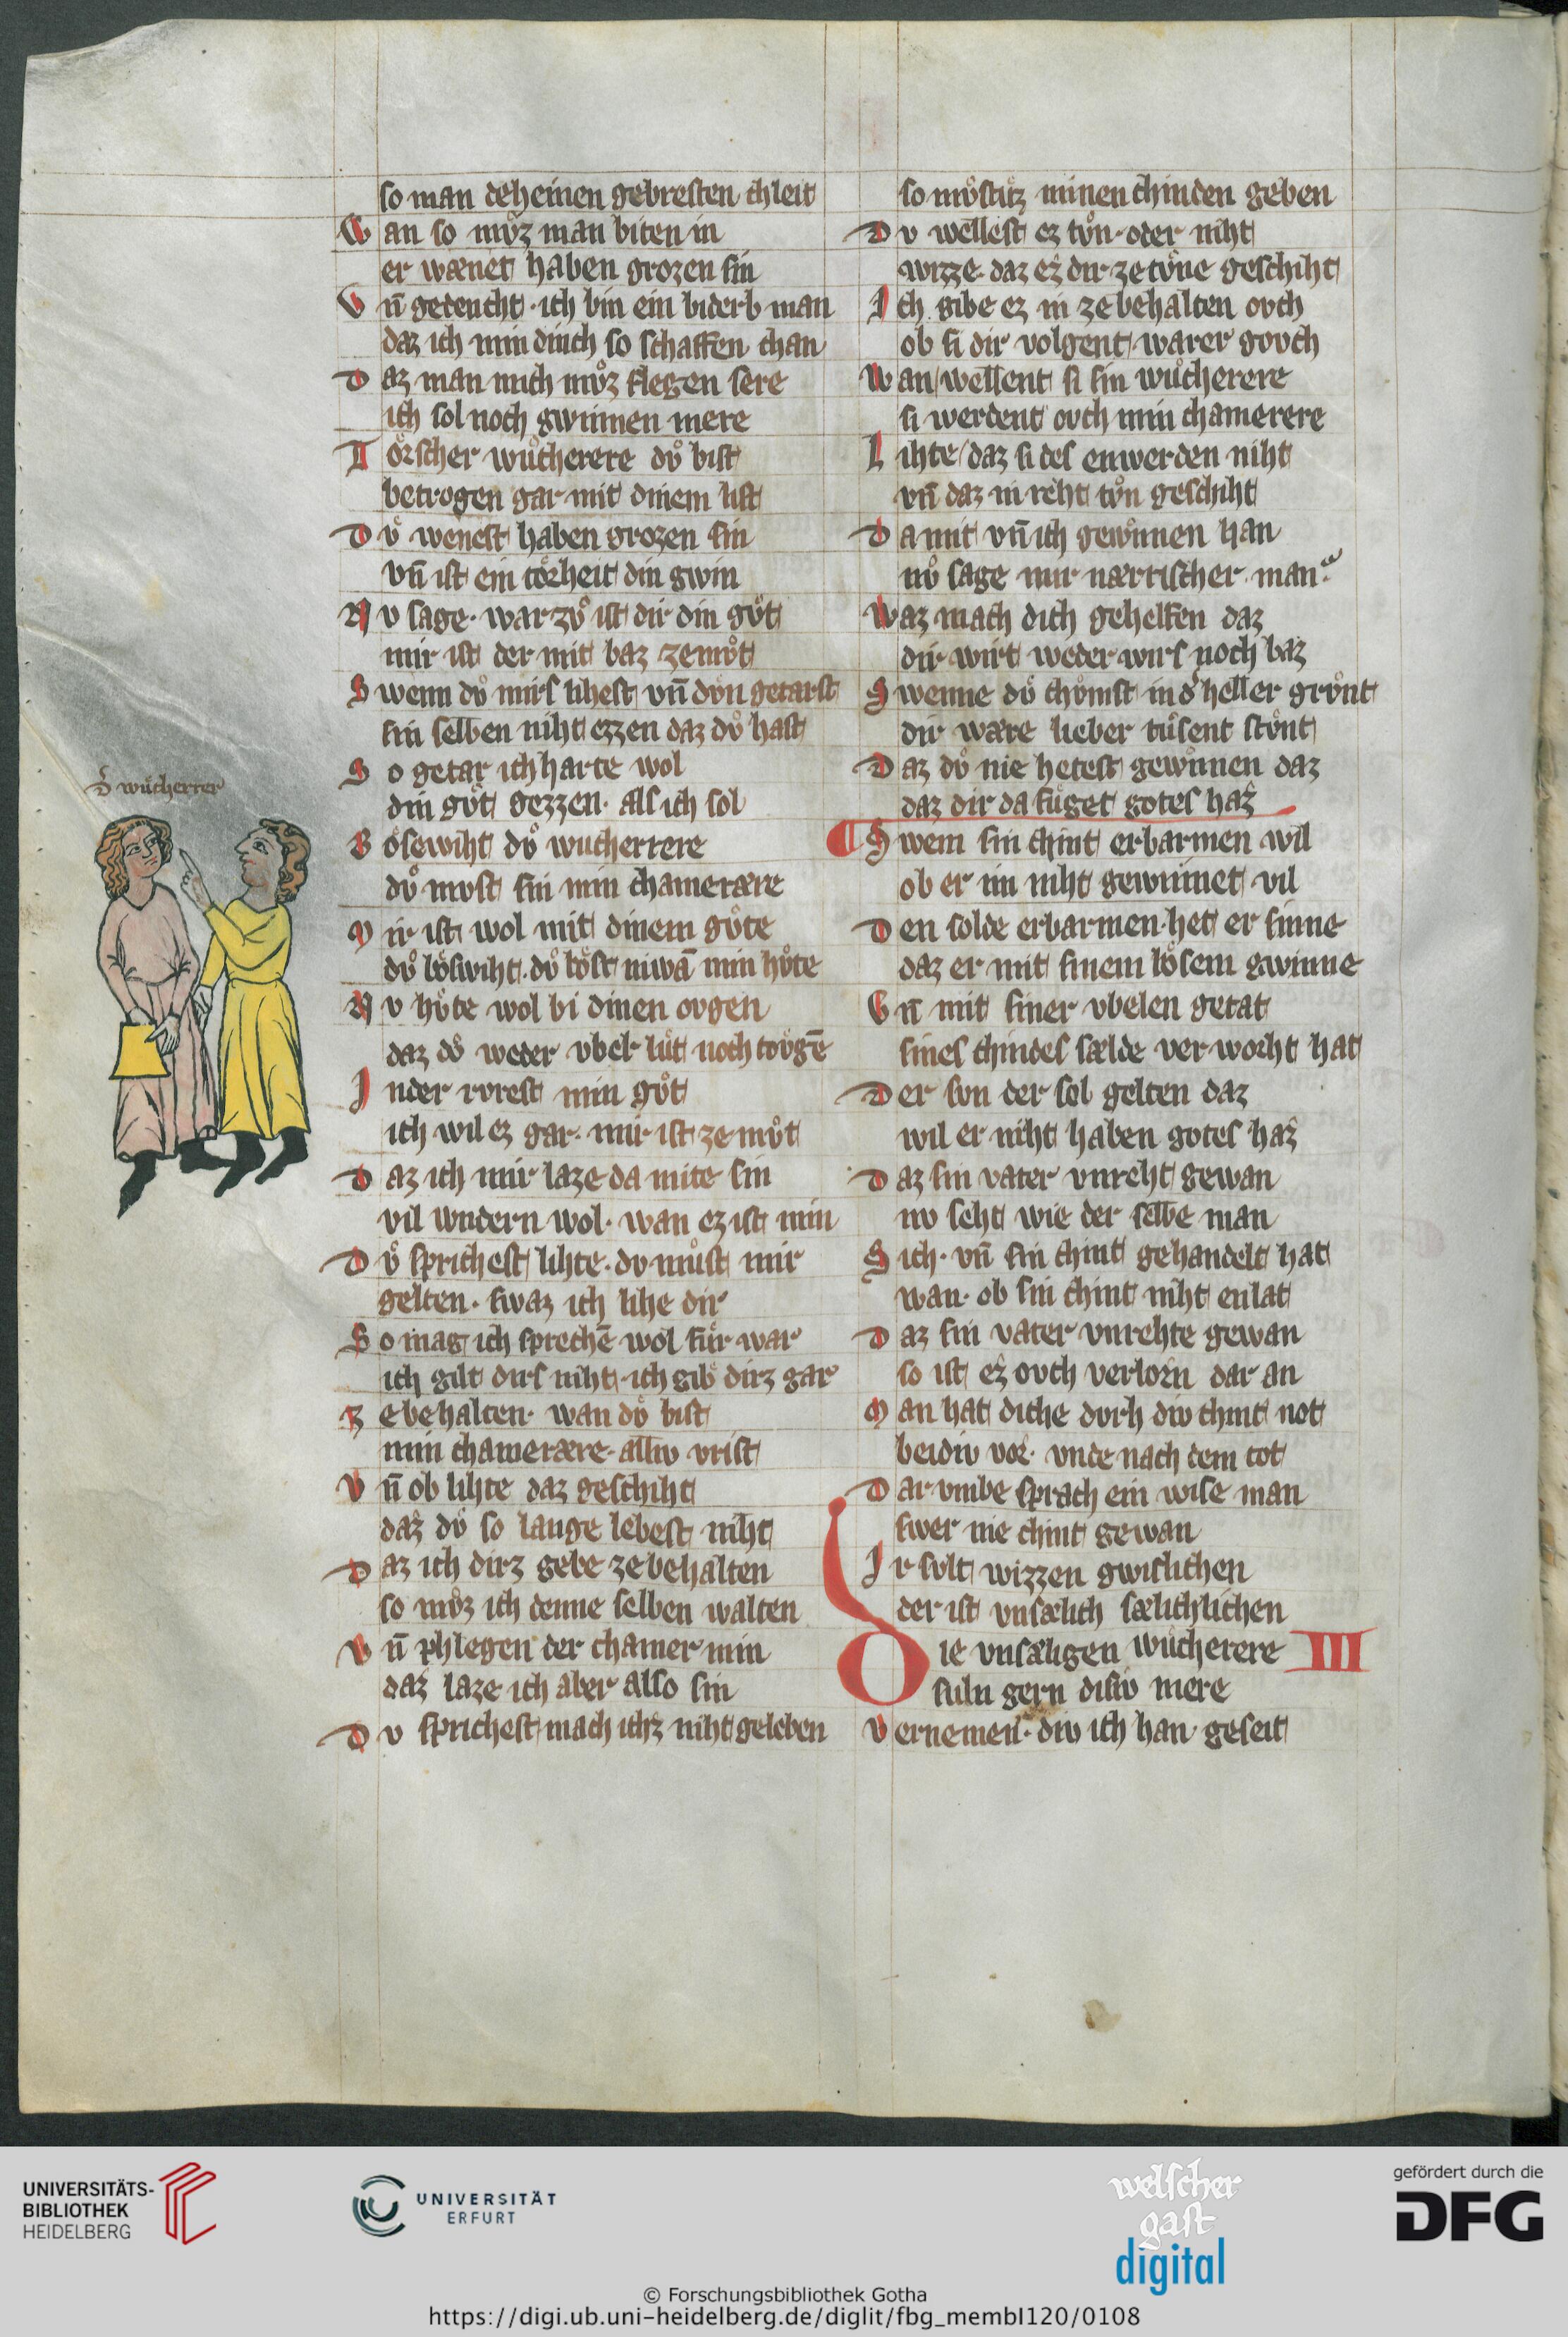 so man deheinen gebresten chleit
Wan so mvͦz man biten in
er wænet haben grozen sin
Vn̄ gedencht · ich bin ein biderb man
daz ich min dinch so schaffen chan
Daz man mich mvͦz flegen sere
ich sol noch gwinnen mere
Torscher wuͦcherere dvͦ bist
betrogen gar mit dinem list
Dvͦ wenest haben grozen sin
vn̄ ist ein torheit din gwin
Nv sage · war zvͦ ist dir din gvͦt
mir ist der mit baz ze mvͦt
Swenn dvͦ mirs lihest vn̄ dvͦn getarst
sin selben niht ezzen daz dvͦ hast
So getar ich harte wol
din gvͦt gezzen · als ich sol
Bosewiht dvͦ wucherrere
dvͦ mvst sin min chamerære
Mir ist wol mit dinem gvͦte
dvͦ boswiht · dvͦ tvͦst niwā min hvͦte
Nv hvͦte wol bi dinen ovgen
daz dvͦ weder vbel lvͦt noch tovgē
Inder rvrest min gvͦt
ich wil ez gar · mir ist ze mvͦt
Daz ich mir laze da mite sin
vil wndern wol · wan ez ist min
Dvͦ sprichest lihte · dv mvͦst mir
gelten · swaz ich lihe dir
So mag ich sprechē wol fuͤr war
ich gilt dirs niht · ich gib dirz gar
Ze behalten · wan dvͦ bist
min chamerære · alliv vrist
Vn̄ ob lihte daz geschiht
daz dvͦ so lange lebest niht
Daz ich dirz gebe ze behalten
so mvͦz ich denne selben walten
Vn̄ phlegen der chamer min
daz laze ich aber also sin
Dv sprichest mach ichz niht geleben
d̄ wuͦcherrer
so mvͦstuͦz minen chinden geben
Dv wellest ez tvͦn · oder niht
wizze · daz ez dir ze tvͦne geschiht
Ich gibe ez in ze behalten ovch
ob si dir volgent warer govch
Wan wellent si sin wuͦcherere
si werdent ovch min chamerere
Lihte / daz si des enwerden niht
vn̄ daz in reht tvͦn geschiht
Da mit vn̄ ich gewnnen han
nvͦ sage mir nærrischer man
Waz mach dich gehelfen daz
dir wirt weder wirs noch baz
Swenne dvͦ chvͦmst in d̾ heller grvͦnt
dir wære lieber tuͦsent stvͦnt
Daz dvͦ nie hetest gewnnen daz
daz dir da fuͦget gotes haz
Swem sin chint erbarmen wil
ob er im niht gewinnet vil
Den solde erbarmen · het er sinne
daz er mit sinem bosem gwinne
Vn̄ mit siner vbelen getat
sines chindes sælde verworht hat
Der svn der sol gelten daz
wil er niht haben gotes haz
Daz sin vater vnreht gewan
nv seht wie der selbe man
Sich · vn̄ sin chint gehandelt hat
wan · ob sin chint niht enlat
Daz sin vater vnrehte gewan
so ist ez ovch verlorn dar an
Man hat diche dvrh div chint not
beidiv vor · vnde nach dem tot
Dar vmbe sprach ein wise man
swer nie chint gewan
Ir svlt wizzen gwislichen
der ist vnsælich sælichlichen
Die vnsæligen wuͦcherere III
suln gern disiv mere
Vernemen · div ich han geseit
UNIVERSITÄTS-
BIBLIOTHEK
HEIDELBERG
UNIVERSITÄT
ERFURT
welscher
gast
digital
gefördert durch die
DFG
© Forschungsbibliothek Gotha
https://digi.ub.uni-heidelberg.de/diglit/fbg_membI120/0108